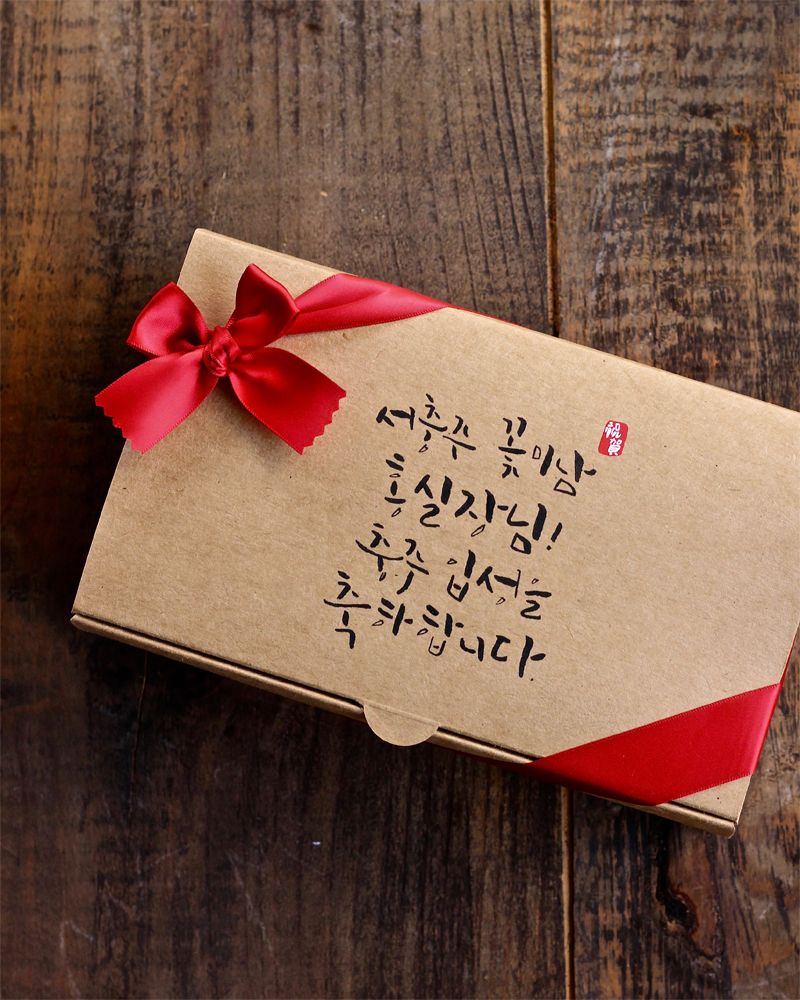 서충주 꽃미남
홍실장님!
충주 입성을
축하합니다.
祝賀